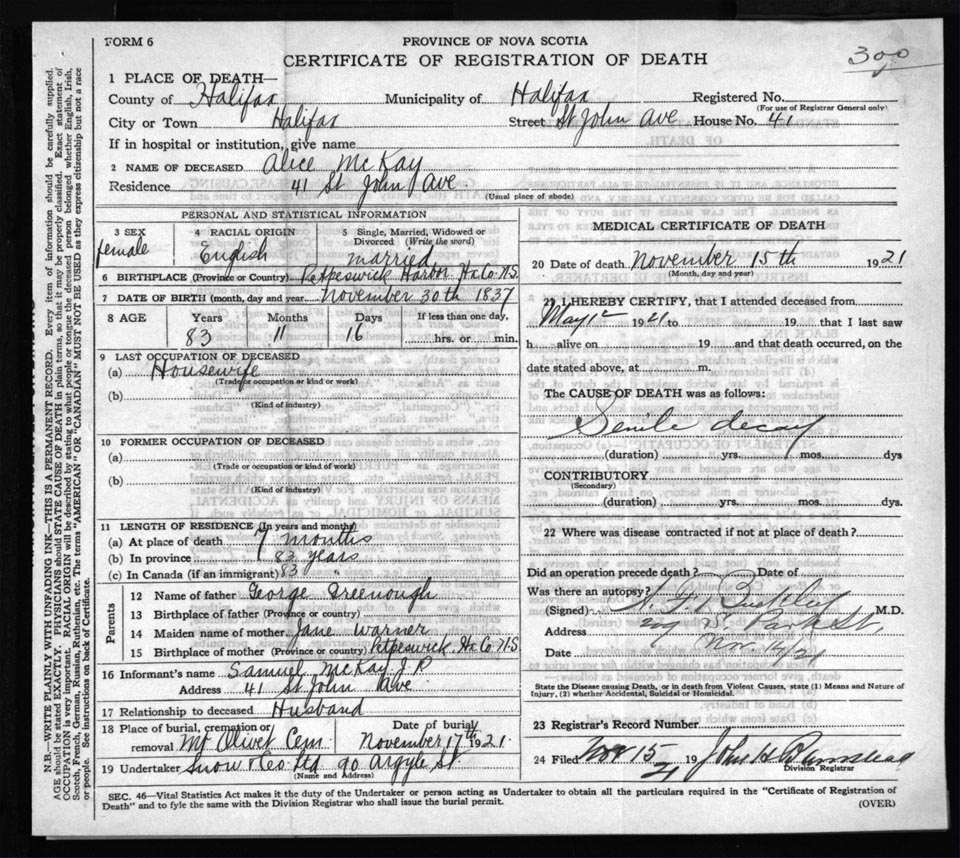 FORM 6
PROVINCE OF NOVA SCOTIA
300
CERTIFICATE OF REGISTRATION OF DEATH
1 PLACE OF DEATH—
County of Halifax Municipality of Halifax Registered No.
(For use of Registrar General only)
City or Town Halifax Street St John Ave House No. 41
If in hospital or institution, give name
2 NAME OF DECEASED Alice McKay
Residence 41 St John Ave
(Usual place of abode)
PERSONAL AND STATISTICAL INFORMATION
3 SEX female
4 RACIAL ORIGIN English
5 Single, Married, Widowed or Divorced (Write the word) married
6 BIRTHPLACE (Province or Country) Petpeswick Harbor Hx Co N.S.
7 DATE OF BIRTH (month, day and year) November 30th 1837
8 AGE Years Months Days If less than one day,
83 11 16 hrs. or min.
9 LAST OCCUPATION OF DECEASED
(a) Housewife
(Trade or occupation or kind or work)
(b)
(Kind of industry)
10 FORMER OCCUPATION OF DECEASED
(a)
(Trade or occupation or kind of work)
(b)
(Kind of industry)
11 LENGTH OF RESIDENCE (In years and months)
(a) At place of death 7 months
(b) In province 83 years
(c) In Canada (if an immigrant) 83 "
Parents
12 Name of father George Greenough
13 Birthplace of father (Province or country)
14 Maiden name of mother Jane Warner
15 Birthplace of mother (Province or country) Petpeswick Hx Co N.S
16 Informant's name Samuel McKay J.P
Address 41 St John Ave
17 Relationship to deceased Husband
18 Place of burial, cremation or removal Mt Olivet Cem
Date of burial November 17th 1921
19 Undertaker Snow & Co Ltd 90 Argyle St
(Name and Address)
MEDICAL CERTIFICATE OF DEATH
20 Date of death November 15th 1921
(Month, day and year)
21 I HEREBY CERTIFY, that I attended deceased from
May 12 1921 to 19 that I last saw
h alive on 19 and that death occurred, on the
date stated above, at m.
The CAUSE OF DEATH was as follows:
Senile decay
(duration) yrs. mos. dys
CONTRIBUTORY
(Secondary)
(duration) yrs. mos. dys.
22 Where was disease contracted if not at place of death?
Did an operation precede death? Date of
Was there an autopsy?
(Signed) Buckley M.D.
Address S. Park St,
Date Nov.
State the Disease causing Death, or in death from Violent Causes, state (1) Means and Nature of
Injury, (2) whether Accidental, Suicidal or Homicidal.
23 Registrar's Record Number
24 Filed Nov 15 21 19 John H
Division Registrar
SEC. 46—Vital Statistics Act makes it the duty of the Undertaker or person acting as Undertaker to obtain all the particulars required in the "Certificate of Registration of
Death" and to fyle the same with the Division Registrar who shall issue the burial permit.
(OVER)
N.B.—WRITE PLAINLY WITH UNFADING INK—THIS IS A PERMANENT RECORD. Every item of information should be carefully supplied.
AGE should be stated EXACTLY. PHYSICIANS should STATE CAUSE OF DEATH in plain terms, so that it may be properly classified. Exact statement of
OCCUPATION is very important. RACIAL ORIGIN will be described by stating to what people or tongue the deceased person belonged whether English, Irish,
Scotch, French, German, Russian, Ruthenian, etc. The terms "AMERICAN" or "CANADIAN" MUST NOT BE USED as they express citizenship but not a race
or people. See instructions on back of Certificate.